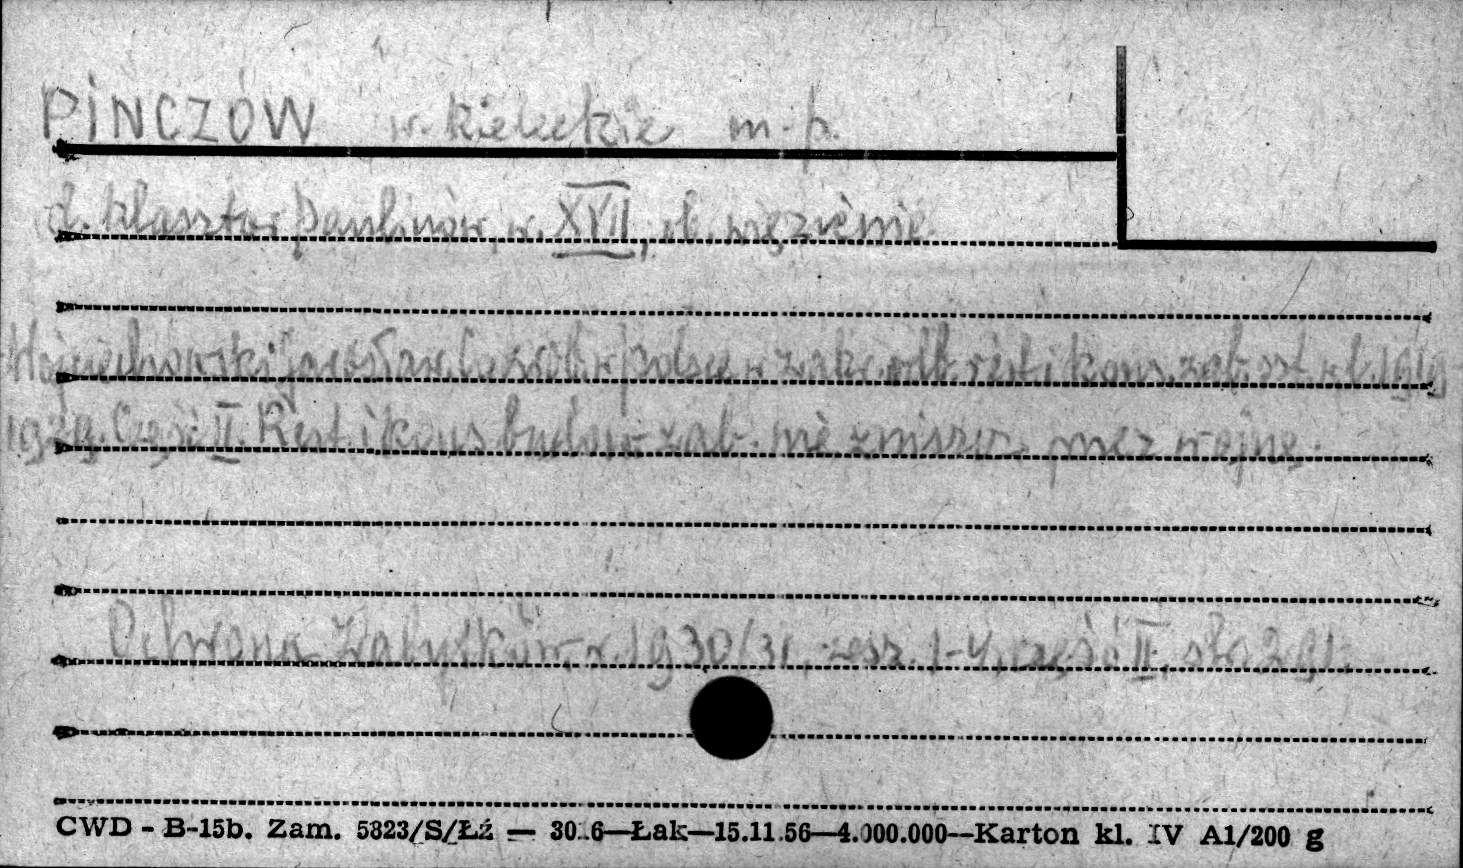 PINCZÓW w. kieleckie m.p.
d. klasztor Paulinów, w. XVII, ob. więzienie
Wojciechowski Jarosław w Polsce w zakr. odb. rest. i kons. zab. szt. w l. 1919
1929. Część II. Rest. i kons. budow. zab. nie zniszcz. przez wojnę.
Ochrona Zabytków r. 1930/31, zesz. 1-4, część II, str. 291.
CWD - B-15b. Zam. 5823/S/Łź — 30.6—Łak—15.11.56—4.000.000—Karton kl. IV A1/200 g